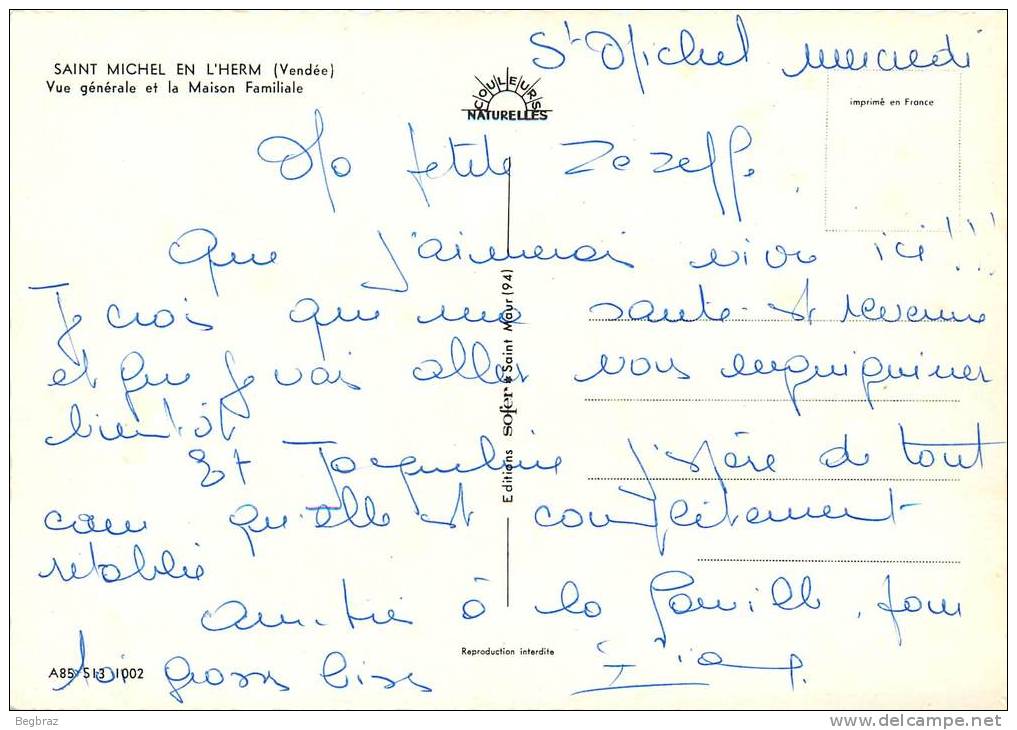 SAINT MICHEL EN L'HERM (Vendée)
Vue générale et la Maison Familiale
COULEURS
NATURELLES
imprimé en France
St Michel mercredi
Ma petite Zézette.
Que j'aimerais vivre ici!!!
Je crois que ma santé est revenue
et que je vais aller vous enquiquiner
bientôt
Et Jacqueline j'espère de tout
cœur qu'elle est complètement
rétablie
Amitiés à la famille, pour
toi grosses bises
Editions sofer Saint Maur (94)
Reproduction interdite
A85 513 1002
Begbraz
www.delcampe.net